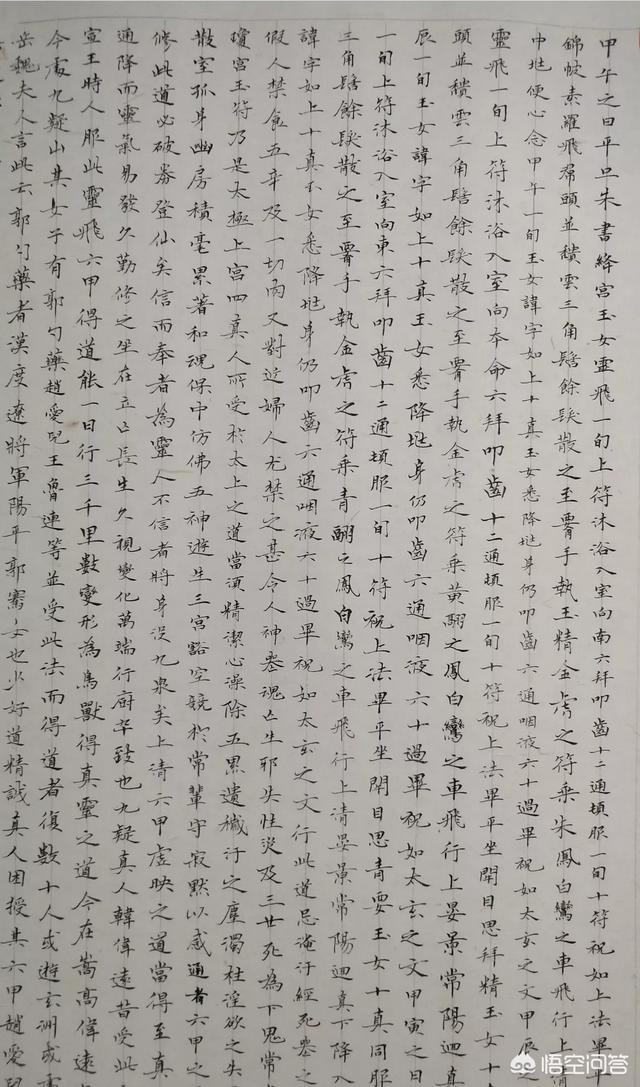 甲午之日平旦朱書絳宮玉女靈飛一旬上符沐浴入室向南六拜叩齒十二通頓服一旬十符祝如上法畢平
錦帔素羅飛帬頭並積雲三角髻餘髮散之至霄手執玉精金虎之符乘朱鳳白鸞之車飛行上清
中兆便心念甲午一旬玉女諱字如上十真玉女悉降兆身仍叩齒六通咽液六十過畢祝如太玄之文甲辰
靈飛一旬上符沐浴入室向本命六拜叩齒十二通頓服一旬十符祝上法畢平坐閉目思拜精玉女十
頭並積雲三角髻餘髮散之至霄手執金虎之符乘黃翮之鳳白鸞之車飛行上晏景常陽迴真
辰一旬玉女諱字如上十真玉女悉降兆身仍叩齒六通咽液六十過畢祝如太玄之文甲寅之日
一旬上符沐浴入室向東六拜叩齒十二通頓服一旬十符祝上法畢平坐閉目思青要玉女十真同服
三角髻餘髮散之至霄手執金虎之符乘青翮之鳳白鸞之車飛行上清晏景常陽迴真下降入
諱字如上十真玉女悉降兆身仍叩齒六通咽液六十過畢祝如太玄之文行此道忌淹汙經死喪之
假人禁食五辛及一切肉又對近婦人尤禁之甚令人神喪魂亡生邪失性災及三世死為下鬼常
瓊宮玉符乃是太極上宮四真人所受於太上之道當須精潔心澡除五累遺穢汙之塵濁杜淫欲之失
散室孤身幽房積毫累著和魂保中仿佛五神遊生三宮豁空競於常輩守寂默以感通者六甲之
修此道必破券登仙矣信而奉者為靈人不信者將身沒九泉矣上清六甲虛映之道當得至真
通降而靈氣易發久勤修之坐在立亡長生久視變化萬端行廚卒致也九疑真人韓偉遠昔受此
宣王時人服此靈飛六甲得道能一日行三千里數變形為鳥獸得真靈之道今在嵩高偉遠
今處九疑山其女子有郭勺藥趙愛兒王魯連等並受此法而得道者復數十人或遊玄洲或
岳魏夫人言此云郭勺藥者漢度遼將軍陽平郭騫女也少好道精誠真人因授其六甲趙愛兒
悟空问答